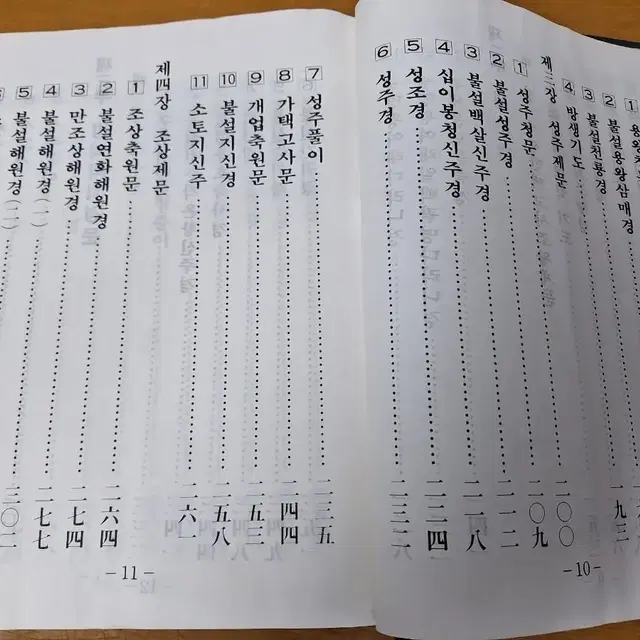 불설용왕삼매경
3 불설천룡경
4 방생기도
제三장 성주제문
1 성주청문
2 불설성주경
3 불설백살신주경
4 십이봉청신주경
5 성조경
6 성주경
一九三
二〇〇
二〇九
二一二
二一八
二二四
-10-
7 성주풀이 二三五
8 가택고사문 二四四
9 개업축원문 二五三
10 불설지신경 二五八
11 소토지신주 二六一
제四장 조상제문
1 조상축원문
2 불설연화해원경
3 만조상해원경
4 불설해원경(一)
5 불설해원경(二)
二六四
二七四
二七七
三〇二
-11-